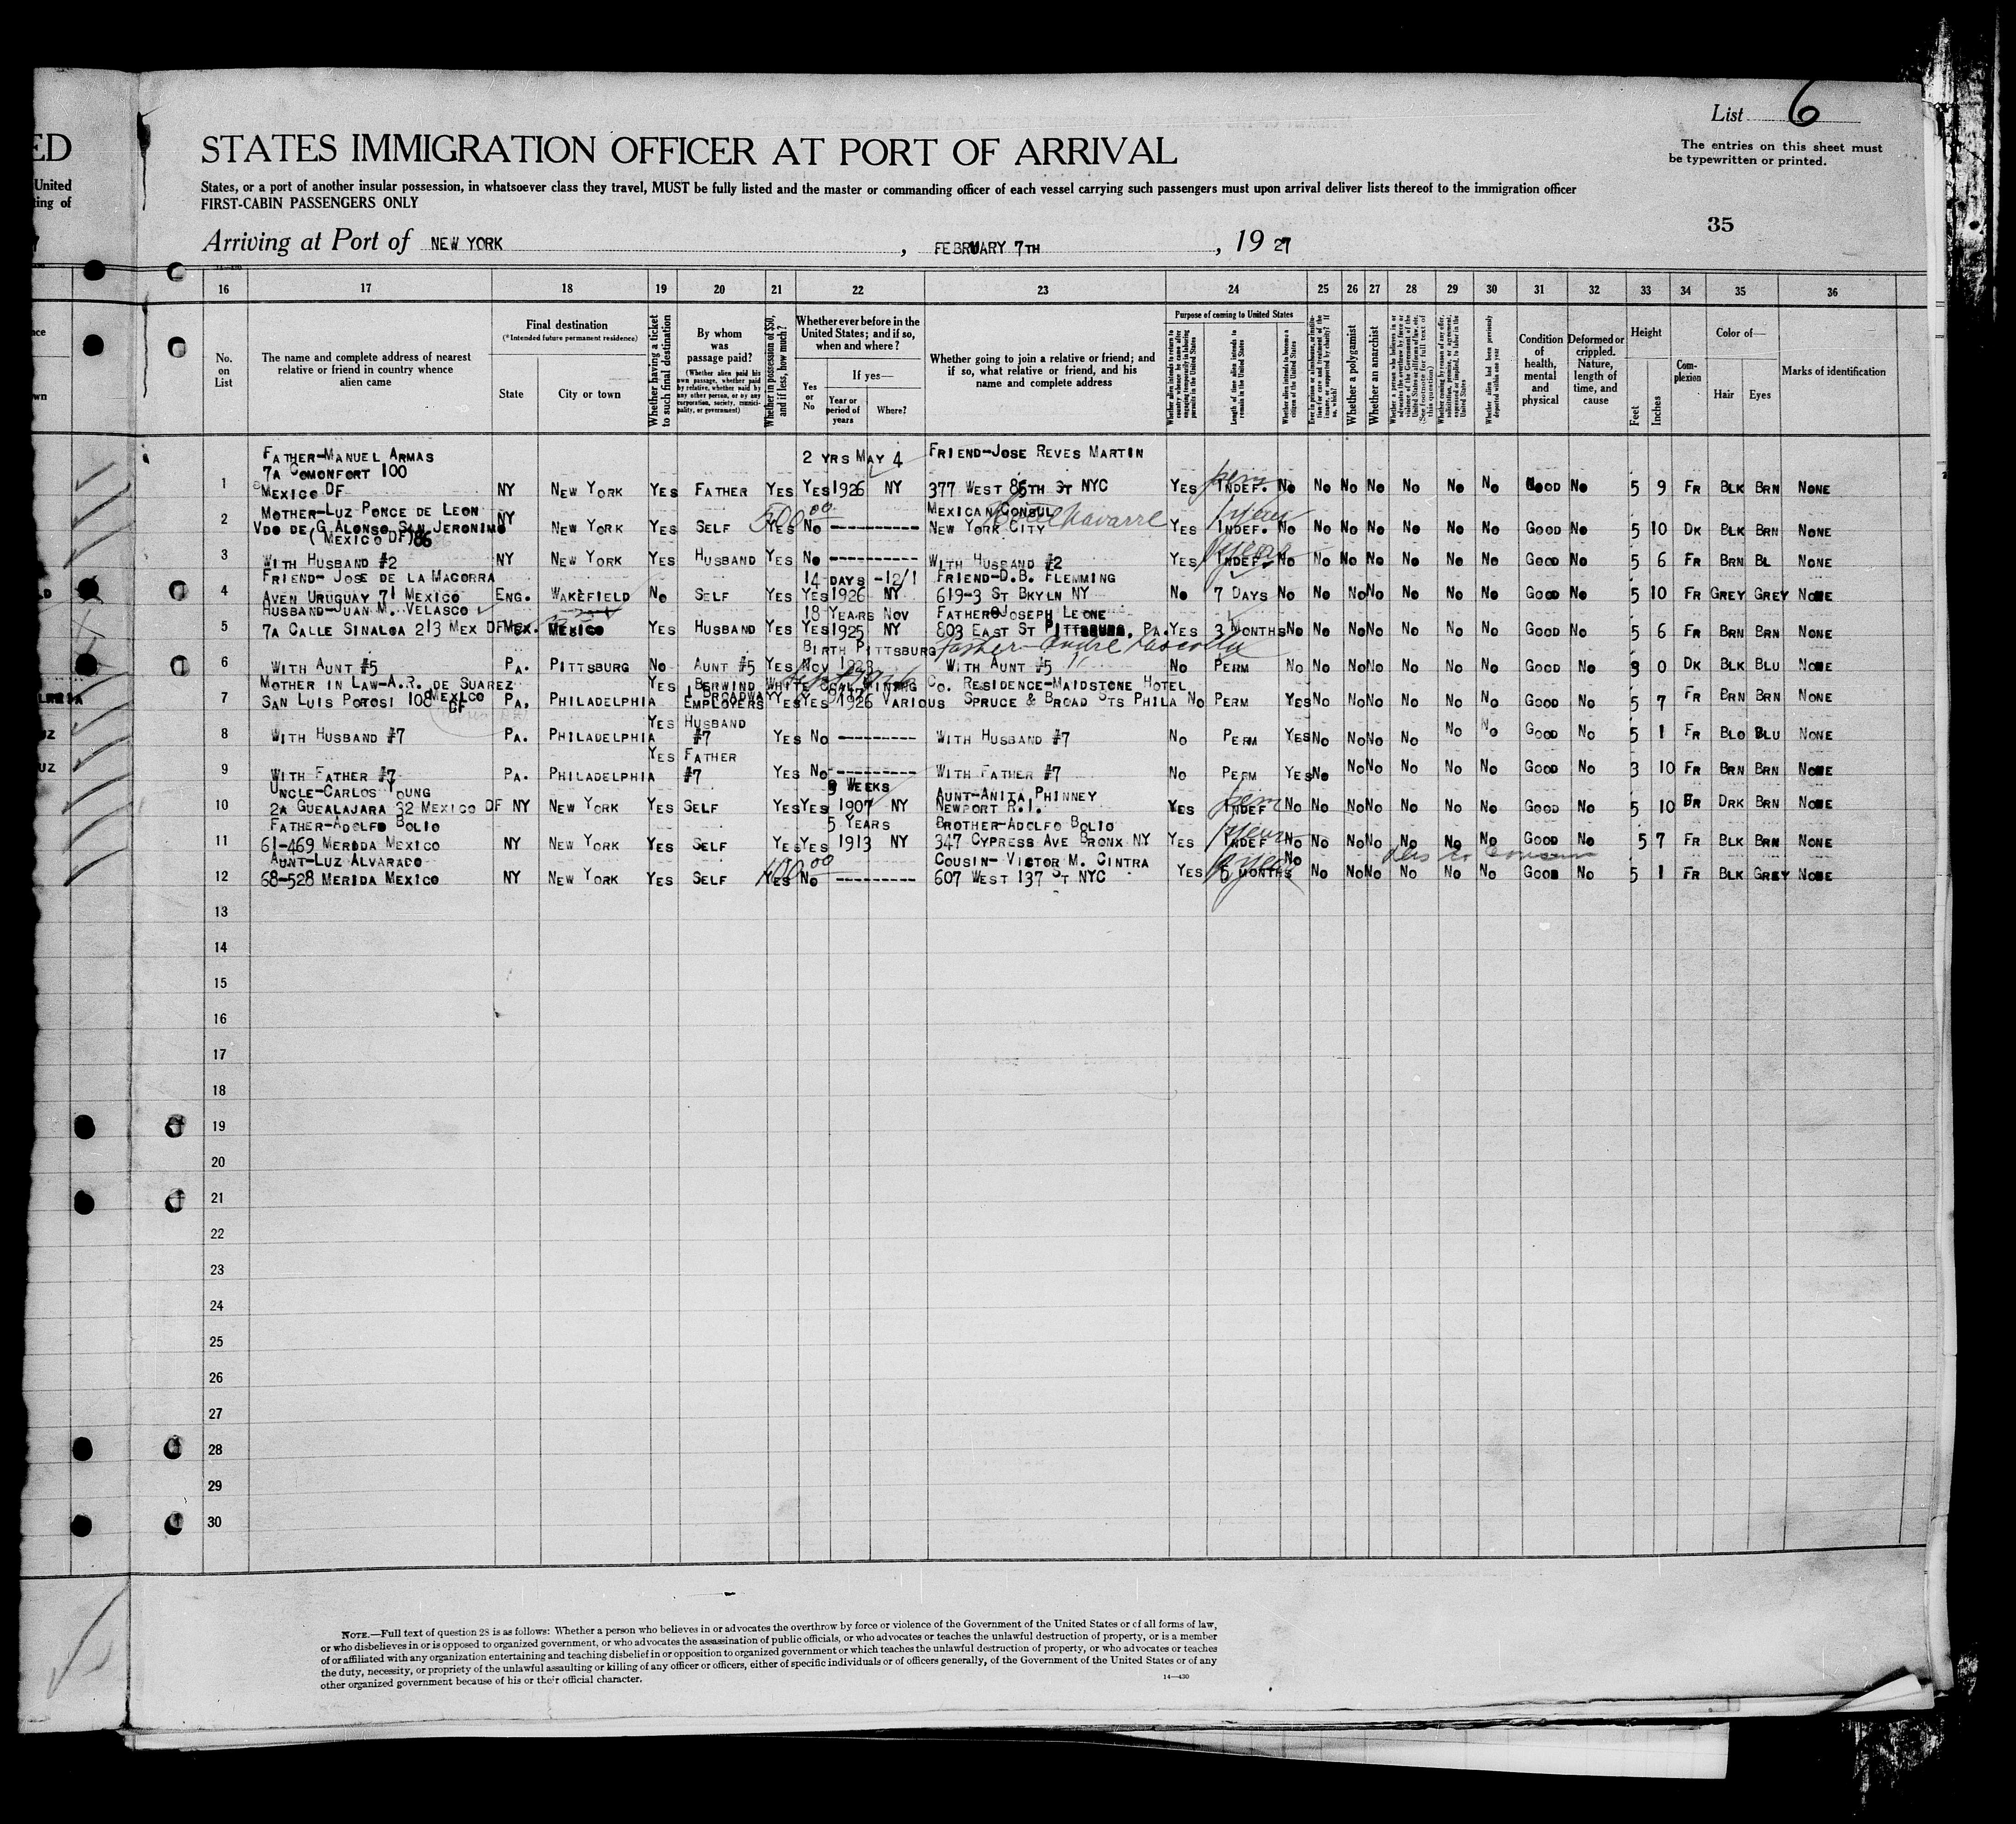 ED
United
ing of
List 6
The entries on this sheet must
be typewritten or printed.
STATES IMMIGRATION OFFICER AT PORT OF ARRIVAL
States, or a port of another insular possession, in whatsoever class they travel, MUST be fully listed and the master or commanding officer of each vessel carrying such passengers must upon arrival deliver lists thereof to the immigration officer
FIRST-CABIN PASSENGERS ONLY
35
Arriving at Port of NEW YORK , FEBRUARY 7TH , 19 27
16 17 18 19 20 21 22 23 24 25 26 27 28 29 30 31 32 33 34 35 36
No. on List
The name and complete address of nearest relative or friend in country whence alien came
Final destination
(*Intended future permanent residence)
State
City or town
Whether having a ticket to such final destination
By whom was passage paid?
(Whether alien paid his own passage, whether paid by relative, whether paid by any other person, or by any corporation, society, municipality, or government)
Whether in possession of $50, and if less, how much?
Whether ever before in the United States; and if so, when and where?
Yes or No
If yes—
Year or period of years
Where?
Whether going to join a relative or friend; and if so, what relative or friend, and his name and complete address
Purpose of coming to United States
Whether alien intends to return to country whence he came after engaging temporarily in laboring pursuits in the United States
Length of time alien intends to remain in the United States
Whether alien intends to become a citizen of the United States
Whether a polygamist
Whether an anarchist
(See footnote for full text of this question)
Whether alien had been previously deported within one year
Condition of health, mental and physical
Deformed or crippled. Nature, length of time, and cause
Height
Feet
Inches
Complexion
Color of—
Hair
Eyes
Marks of identification
FATHER-MANUEL ARMAS 2 YRS MAY 4 FRIEND-JOSE REVES MARTIN
7A COMONFORT 100
1 MEXICO DF NY NEW YORK YES FATHER YES YES 1926 NY 377 WEST 86TH ST NYC YES INDEF. NO NO NO NO NO NO NO GOOD NO 5 9 FR BLK BRN NONE
MOTHER-LUZ PONCE DE LEON MEXICAN CONSUL
2 VDO DE G ALONSO SAN JERONIMO NY NEW YORK YES SELF YES NO ---------- NEW YORK CITY YES INDEF. NO NO NO NO NO NO NO GOOD NO 5 10 DK BLK BRN NONE
(MEXICO DF) 86
3 WITH HUSBAND #2 NY NEW YORK YES HUSBAND YES NO ---------- WITH HUSBAND #2 YES INDEF. NO NO NO NO NO NO NO GOOD NO 5 6 FR BRN BL NONE
FRIEND- JOSE DE LA MACORRA 14 DAYS -12/1 FRIEND-D.B. FLEMMING
4 AVEN URUGUAY 71 MEXICO ENG. WAKEFIELD NO SELF YES YES 1926 NY 619-3 ST BKYLN NY NO 7 DAYS NO NO NO NO NO NO NO GOOD NO 5 10 FR GREY GREY NONE
HUSBAND-JUAN M. VELASCO 18 YEARS NOV FATHER JOSEPH LEONE
5 7A CALLE SINALOA 213 MEX DF MEX. MEXICO YES HUSBAND YES YES 1925 NY 803 EAST ST PITTSBURG, PA. YES 3 MONTHS NO NO NO NO NO NO NO GOOD NO 5 6 FR BRN BRN NONE
BIRTH PITTSBURG
6 WITH AUNT #5 PA. PITTSBURG NO AUNT #5 YES NOV 1923 WITH AUNT #5 NO PERM NO NO NO NO NO NO NO GOOD NO 3 0 DK BLK BLU NONE
MOTHER IN LAW-A.R. DE SUAREZ YES BERWIND WHITE COAL MINING CO. RESIDENCE-MAIDSTONE HOTEL
1 BROADWAY
7 SAN LUIS POTOSI 108 MEXICO DF PA. PHILADELPHIA EMPLOYERS YES YES 1926 VARIOUS SPRUCE & BROAD STS PHILA NO PERM YES NO NO NO NO NO NO GOOD NO 5 7 FR BRN BRN NONE
YES HUSBAND
8 WITH HUSBAND #7 PA. PHILADELPHIA #7 YES NO --------- WITH HUSBAND #7 NO PERM YES NO NO NO NO NO NO GOOD NO 5 1 FR BLO BLU NONE
YES FATHER
9 WITH FATHER #7 PA. PHILADELPHIA #7 YES NO --------- WITH FATHER #7 NO PERM YES NO NO NO NO NO NO GOOD NO 3 10 FR BRN BRN NONE
UNCLE-CARLOS YOUNG WEEKS AUNT-ANITA PHINNEY
10 2A GUEALAJARA 32 MEXICO DF NY NEW YORK YES SELF YES YES 1907 NY NEWPORT R.I. YES INDEF NO NO NO NO NO NO NO GOOD NO 5 10 BR DRK BRN NONE
FATHER-ADOLFO BOLIO 5 YEARS BROTHER-ADOLFO BOLIO
11 61-469 MERIDA MEXICO NY NEW YORK YES SELF YES YES 1913 NY 347 CYPRESS AVE BRONX NY YES INDEF NO NO NO NO NO NO NO GOOD NO 5 7 FR BLK BRN NONE
AUNT-LUZ ALVARADO COUSIN- VICTOR M. CINTRA NO
12 68-528 MERIDA MEXICO NY NEW YORK YES SELF YES NO --------- 607 WEST 137 ST NYC YES 6 MONTHS NO NO NO NO NO NO GOOD NO 5 1 FR BLK GREY NONE
13
14
15
16
17
18
19
20
21
22
23
24
25
26
27
28
29
30
NOTE.—Full text of question 28 is as follows: Whether a person who believes in or advocates the overthrow by force or violence of the Government of the United States or of all forms of law,
or who disbelieves in or is opposed to organized government, or who advocates the assassination of public officials, or who advocates or teaches the unlawful destruction of property, or is a member
of or affiliated with any organization entertaining and teaching disbelief in or opposition to organized government or which teaches the unlawful destruction of property, or who advocates or teaches
the duty, necessity, or propriety of the unlawful assaulting or killing of any officer or officers, either of specific individuals or of officers generally, of the Government of the United States or of any
other organized government because of his or their official character.
14—430